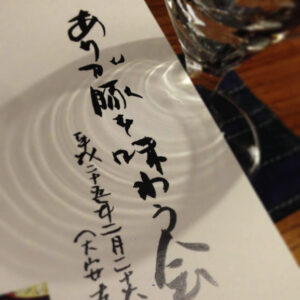 ありが豚を味わう会
平成二十五年二月二十六
(大安吉